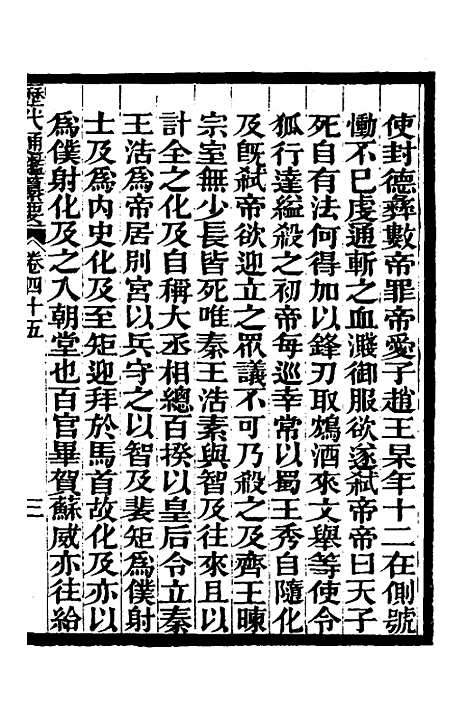 使封德彝數帝罪帝愛子趙王杲年十二在側號
慟不已虔通斬之血濺御服欲遂弒帝帝曰天子
死自有法何得加以鋒刃取鴆酒來文舉等使令
狐行達縊殺之初帝每巡幸常以蜀王秀自隨化
及既弒帝欲迎立之眾議不可乃殺之及齊王暕
宗室無少長皆死唯秦王浩素與智及往來且以
計全之化及自稱大丞相總百揆以皇后令立秦
王浩為帝居別宮以兵守之以智及裴矩為僕射
士及為內史化及至矩迎拜於馬首故化及亦以
為僕射化及之入朝堂也百官畢賀蘇威亦往給
歷代通鑑纂要 卷四十五 三